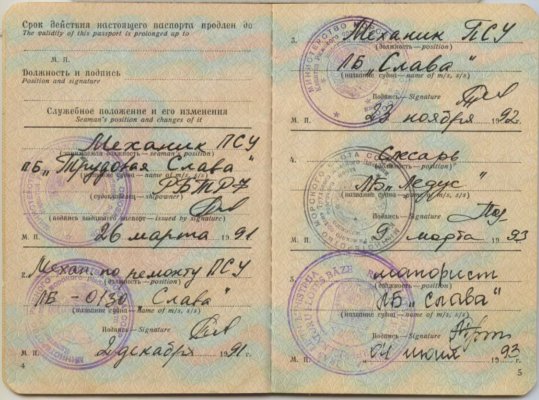 Срок действия настоящего паспорта продлен до
The validity of this passport is prolonged up to
М. П.
Должность и подпись
Position and signature
Служебное положение и его изменения
Seaman's position and changes of it
Механик ПСУ
(занимаемая должность — seaman's position)
ПБ „Трудовая Слава"
(название судна — name of m/s, s/s)
(судовладелец — shipowner)
(подпись выдавшего паспорт — issued by signature)
М. П. 26 марта 1991 г.
2. Механ. по ремонту ПСУ
(должность — position)
ЛБ - 0130 „Слава"
(название судна — name of m/s, s/s)
Подпись — Signature
М. П. 2 декабря 1991 г.
4
3. Механик ПСУ
(должность — position)
ЛБ „Слава"
(название судна — name of m/s, s/s)
Подпись — Signature
М. П. 23 ноября 1992 г.
4. Слесарь
(должность — position)
ЛБ „Ледус"
(название судна — name of m/s, s/s)
Подпись — Signature
М. П. 9 марта 1993
5. моторист
(должность — position)
ЛБ „Слава"
(название судна — name of m/s, s/s)
Подпись — Signature
М. П. 04 июня 1993 г.
5